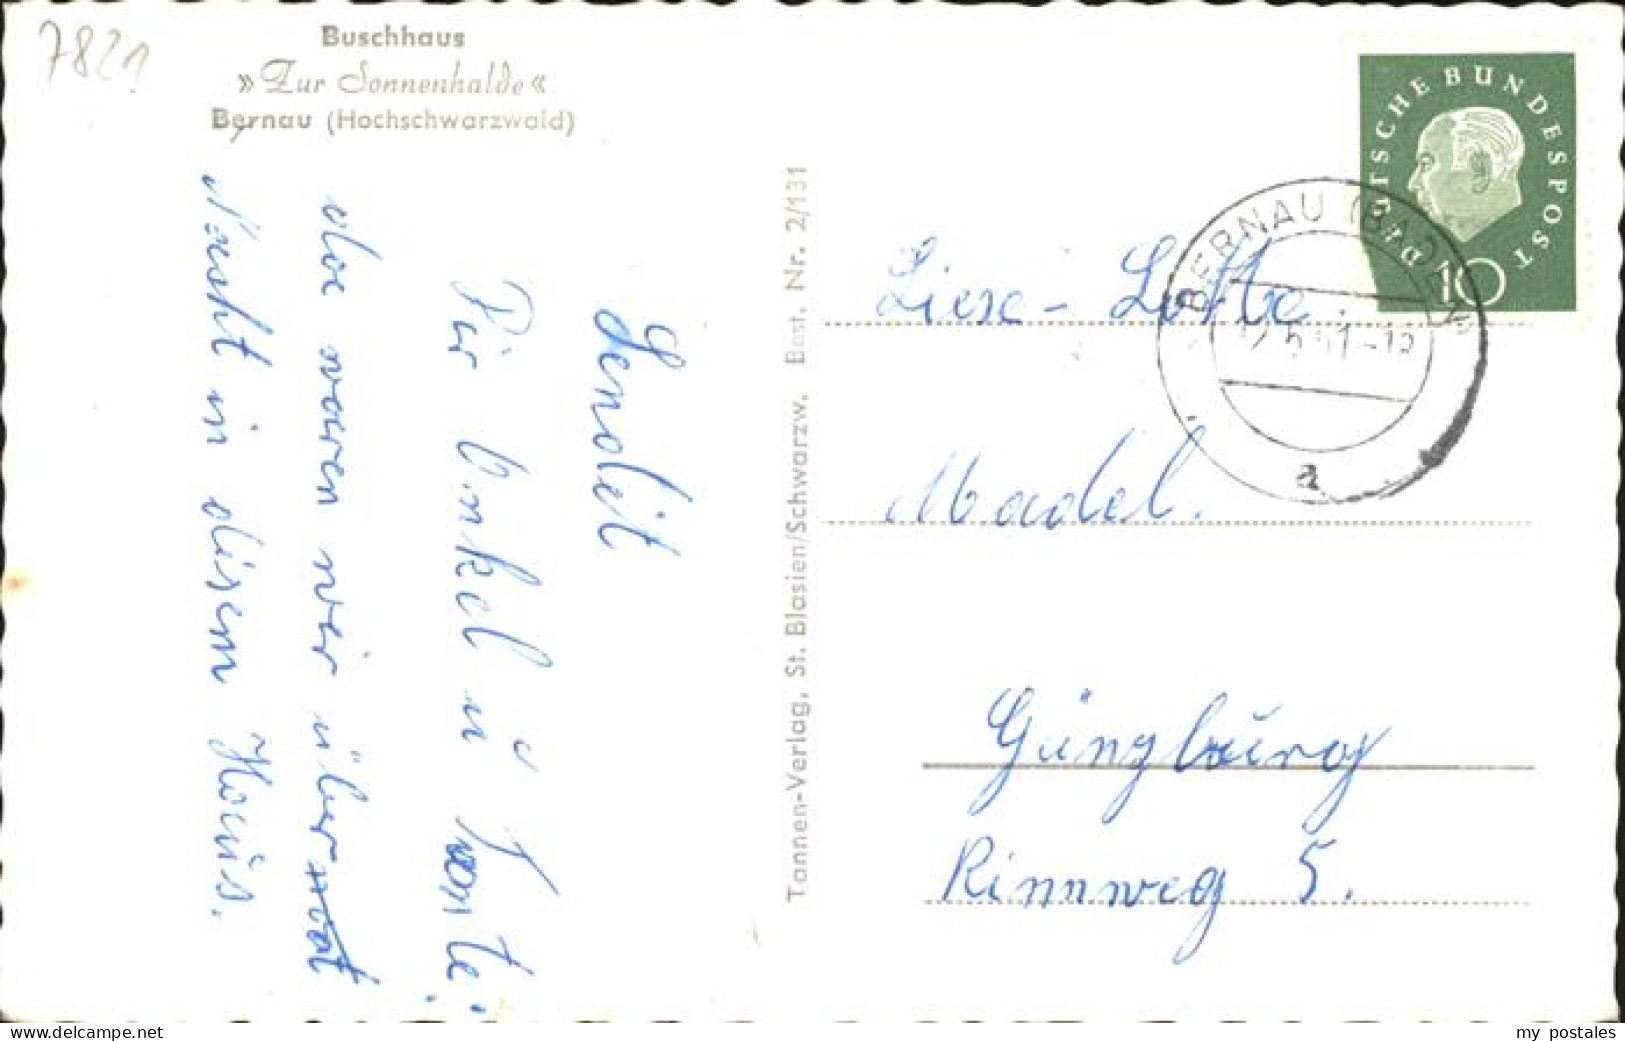 7821
Buschhaus
»Zur Sonnenhalde«
Bernau (Hochschwarzwald)
Sendet
Dir Onkel u Tante.
da waren wir über
Nacht in disem Haus.
Tannen-Verlag, St. Blasien/Schwarzw. Best. Nr. 2/131
DEUTSCHE BUNDESPOST
10
BERNAU (BADEN)
a
Liese-Lotte.
Madel.
Günzburg
Rinnweg 5.
my postales